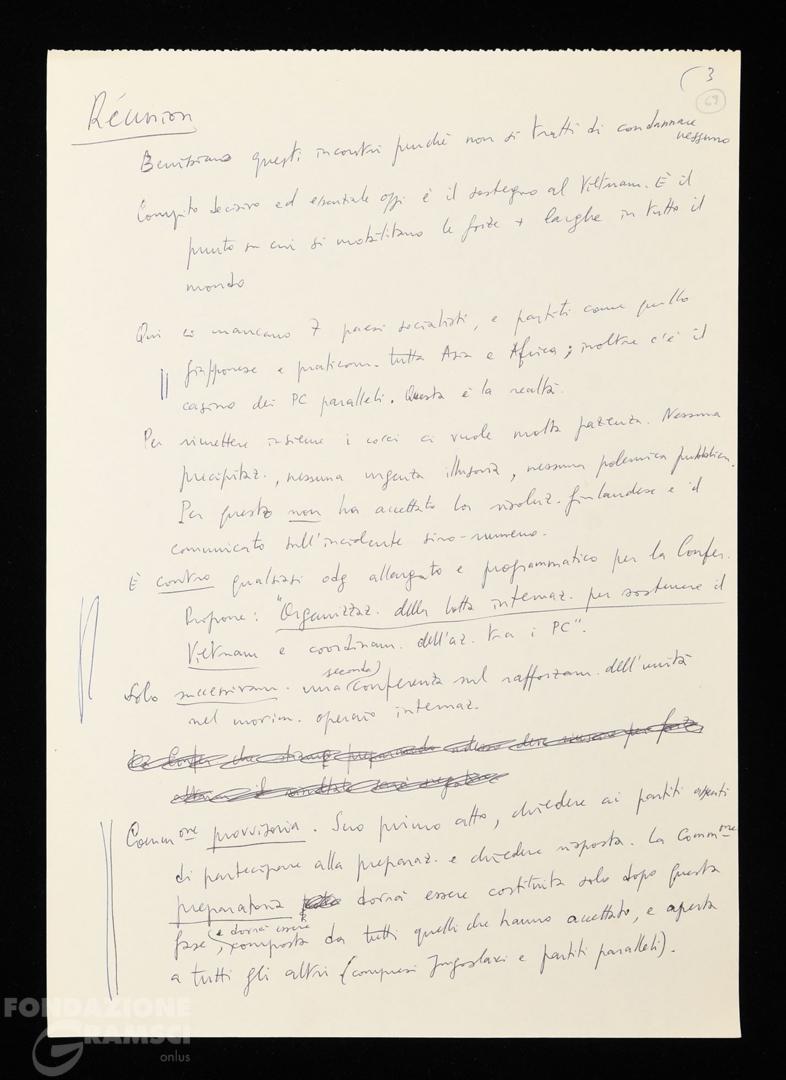 (3
69
Réunion
Benissimo questi incontri purché non si tratti di condannare
nessuno
Compito decisivo ed essenziale oggi è il sostegno al Vietnam. È il
punto su cui si mobilitano le forze + larghe in tutto il
mondo
Qui ci mancano 7 paesi socialisti, e partiti come quello
giapponese e praticam. tutta Asia e Africa; inoltre c'è il
casino dei PC paralleli. Questa è la realtà.
Per rimettere insieme i cocci ci vuole molta pazienza. Nessuna
precipitaz., nessuna urgenza illusoria, nessuna polemica pubblica.
Per questo non ha accettato la risoluz. finlandese e il
comunicato sull'incidente sino-rumeno.
È contro qualsiasi odg allargato e programmatico per la Confer.
Propone: "Organizzaz. della lotta internaz. per sostenere il
Vietnam e coordinam. dell'az. tra i PC".
Solo successivam. una (seconda) conferenza sul rafforzam. dell'unità
nel movim. operaio internaz.
Commone provvisoria. Suo primo atto, chiedere ai partiti assenti
di partecipare alla preparaz. e chiedere risposta. La Commone
preparatoria dovrà essere costituita solo dopo questa
fase, e dovrà essere composta da tutti quelli che hanno accettato, e aperta
a tutti gli altri (compresi Jugoslavi e partiti paralleli).
FONDAZIONE
GRAMSCI
onlus